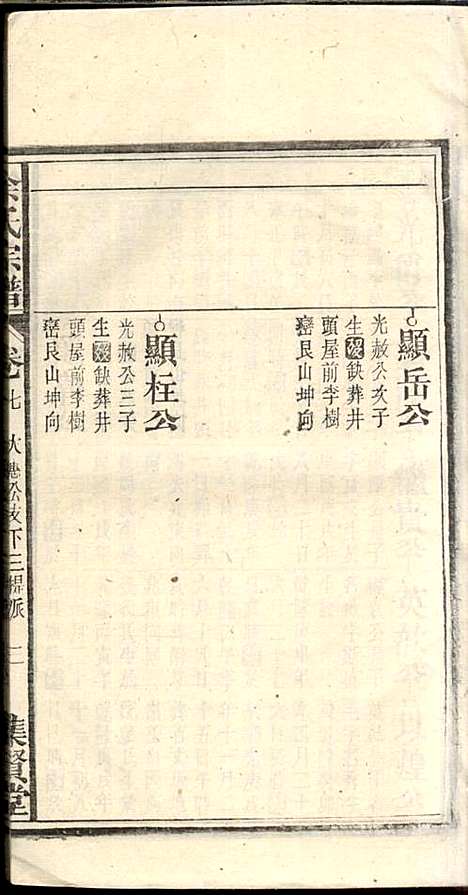 顯岳公
光赦公次子
生歿缺葬井
頭屋前李樹
窰艮山坤向
顯柱公
光赦公三子
生歿缺葬井
頭屋前李樹
窰艮山坤向
余氏宗譜
卷七
公支下三楫派
二
集賢堂